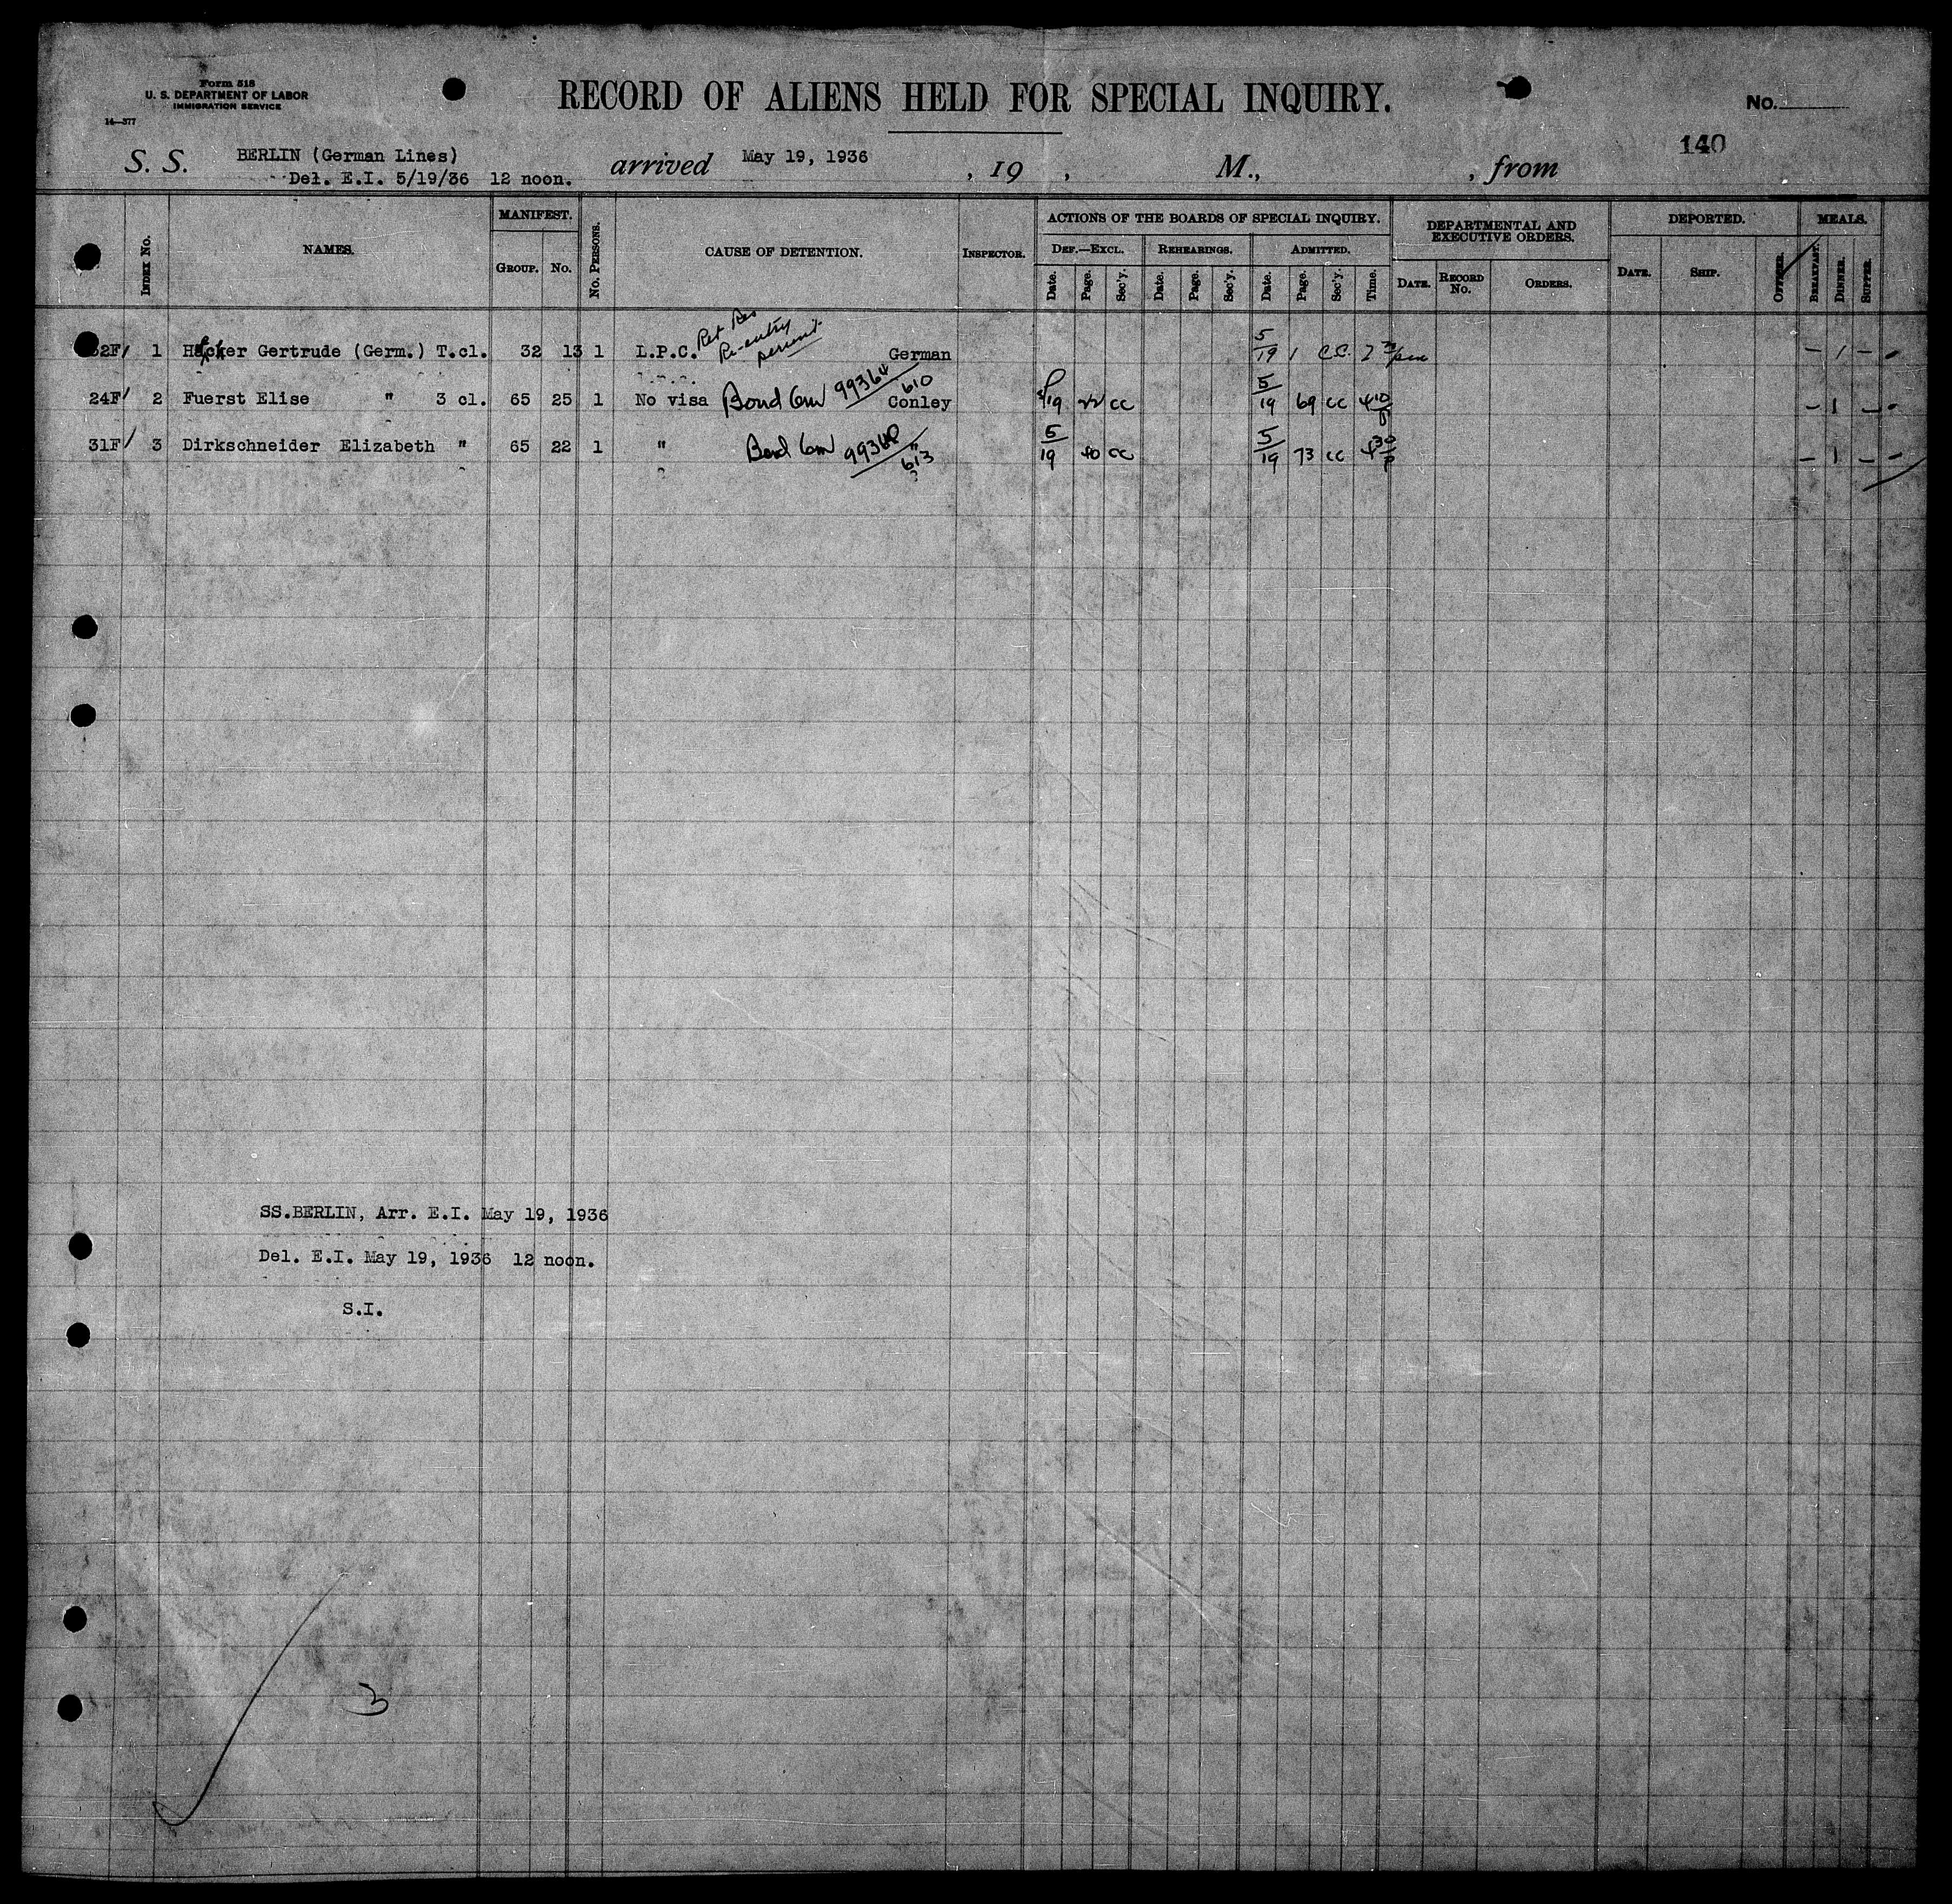 Form 518
U. S. DEPARTMENT OF LABOR
IMMIGRATION SERVICE
14—377
RECORD OF ALIENS HELD FOR SPECIAL INQUIRY.
No.
140
S. S. BERLIN (German Lines) arrived May 19, 1936 , 19 , M., , from
Del. E.I. 5/19/36 12 noon.
INDEX No. NAMES. MANIFEST. GROUP. No. No. PERSONS. CAUSE OF DETENTION. INSPECTOR. ACTIONS OF THE BOARDS OF SPECIAL INQUIRY. DEF.—EXCL. Date. Page. Sec'y. REHEARINGS. Date. Page. Sec'y. ADMITTED. Date. Page. Sec'y. Time. DEPARTMENTAL AND EXECUTIVE ORDERS. DATE. RECORD No. ORDERS. DEPORTED. DATE. SHIP. OFFICER. MEALS. BREAKFAST. DINNER. SUPPER.
32F/ 1 Gertrude (Germ.) T.cl. 32 13 1 L.P.C. Ret Res Re-entry permit German 5/19 1 C.C. – 1 – –
24F/ 2 Fuerst Elise " 3 cl. 65 25 1 No visa Bond 99364 610 Conley 5/19 22 CC 5/19 69 CC 4 10/P – 1 – –
31F/ 3 Dirkschneider Elizabeth " 65 22 1 " Bond 613 " 5/19 40 CC 5/19 73 CC 4 30/P – 1 – –
SS.BERLIN, Arr. E.I. May 19, 1936
Del. E.I. May 19, 1936 12 noon.
S.I.
3